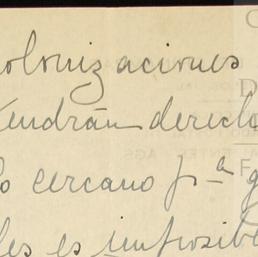 olonizaciones
tendrán derech
o cercano pª q
les es imposib